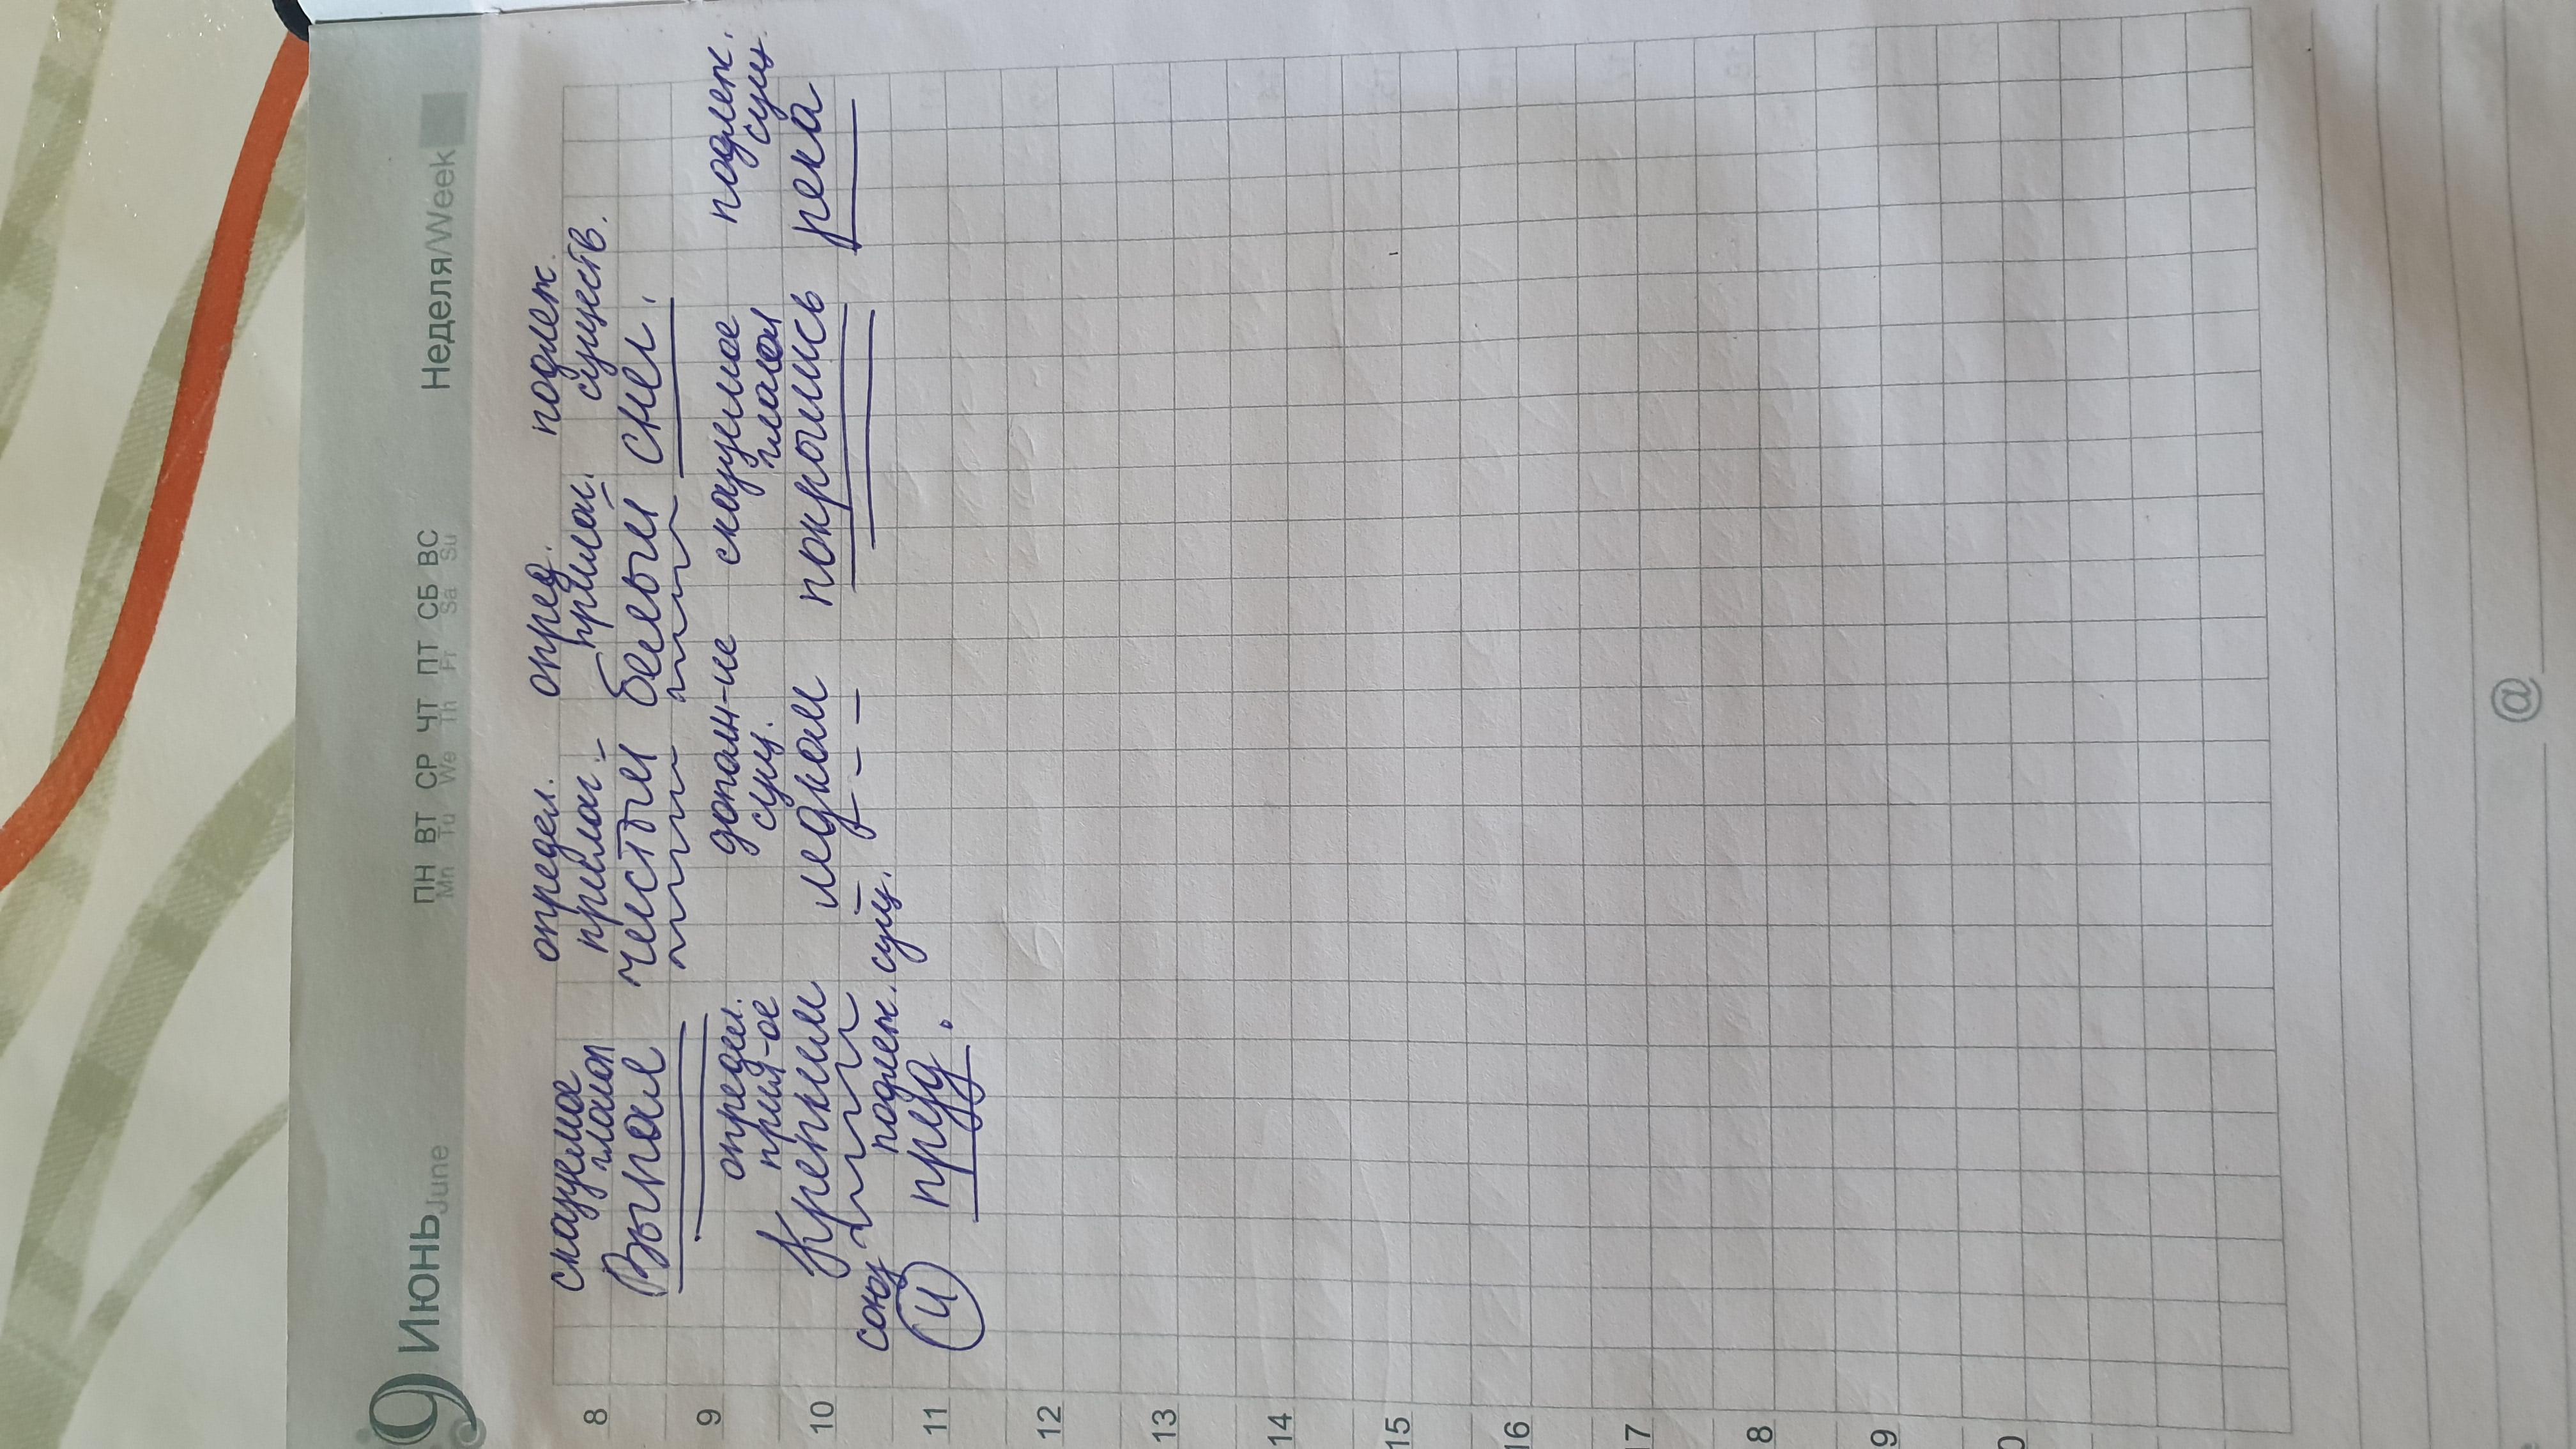 9 Июнь June ПН ВТ СР ЧТ ПТ СБ ВС Неделя/Week
Mn Tu We Th Fr Sa Su
сказуемое опредeл. опред. подлеж.
глагол прилаг. прилаг. существ.
8 Выпал чистый белый снег.
9 определ. дополн-ие сказуемое подлеж.
прил-ое сущ. глагол сущ.
10 Крепким ледком покрылись река
союз подлеж. сущ.
11 и пруд.
12
13
14
15
16
17
8
9
0
@